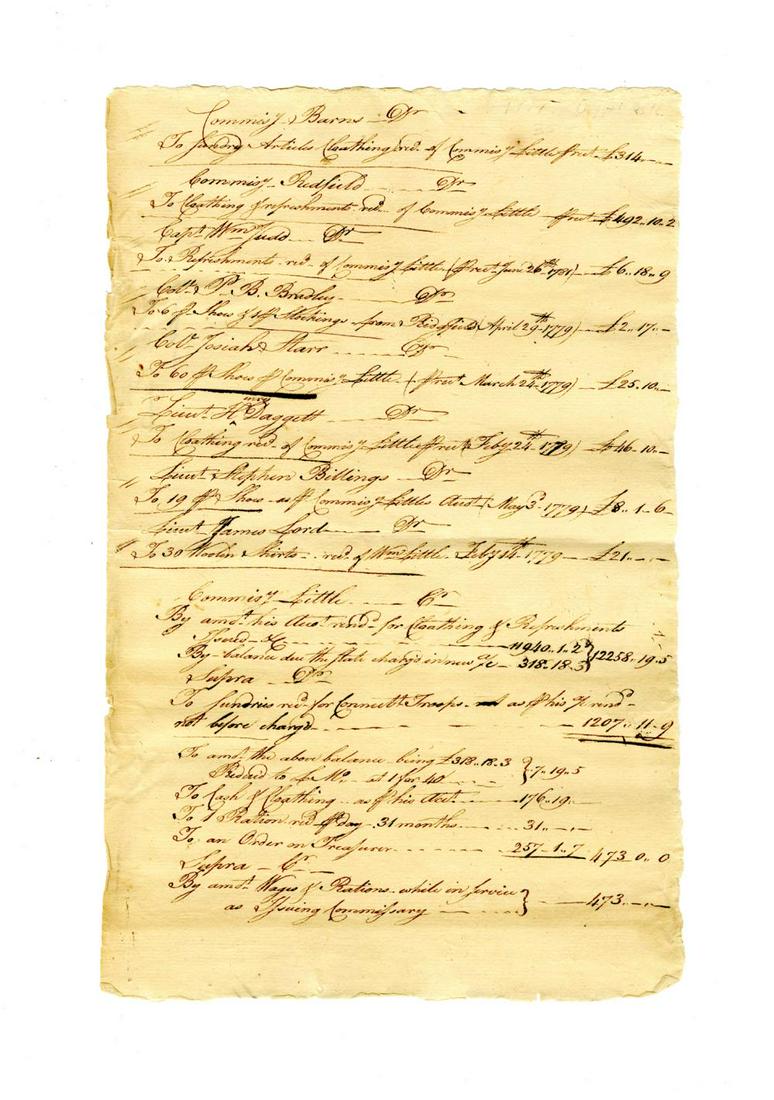 Commisy Barns Dr
To Sundry Articles Cloathing red. of Commisy Little £314
Commisy Redfield Dr
To Cloathing & refreshments red. of Commisy Little £492..10..2
Capt. Wm Judd Dr
To Refreshments red. of Commisy Little (pr rect June 26th 1781) £6..18..9
Colo P. B. Bradley Dr
To 6 pr Shoes & 1 pr Stockings from Redfield (April 29th 1779) £2..17
Colo Josiah Starr Dr
To 60 pr Shoes pr Commisy Little (pr rect March 24th 1779) £25..10
Lieut. H Daggett Dr
To Cloathing red. of Commisy Little pr rect (Feby 24th 1779) £46..10
Lieut Stephen Billings Dr
To 19 pr Shoes as pr Commisy Littles Accot (May 3d 1779) £8..1..6
Lieut James Lord Dr
To 30 Woolen Shirts red. of Wm Little Feby 14th 1779 £21
Commisy Little Cr
By amot. his Accot rend. for Cloathing & Refreshments
Issued &c 11940..1..2
By balance due the State charg'd in new a/c 318..18..3 } 12258..19..5
Supra Dr
To Sundries red. for Connectt Troops as pr his rend.
not before charg'd 1207..11..9
To amot. the above balance being £318..18..3
Reduced to L Mo. at 1 for 40 } 7..19..5
To Cash & Cloathing as pr his Accot. 176..19
To 1 Ration red pr day 31 months 31
To an Order on Treasurer 257..1..7 473..0..0
Supra Cr
By amot. Wages & Rations while in Service
as Issuing Commissary } 473